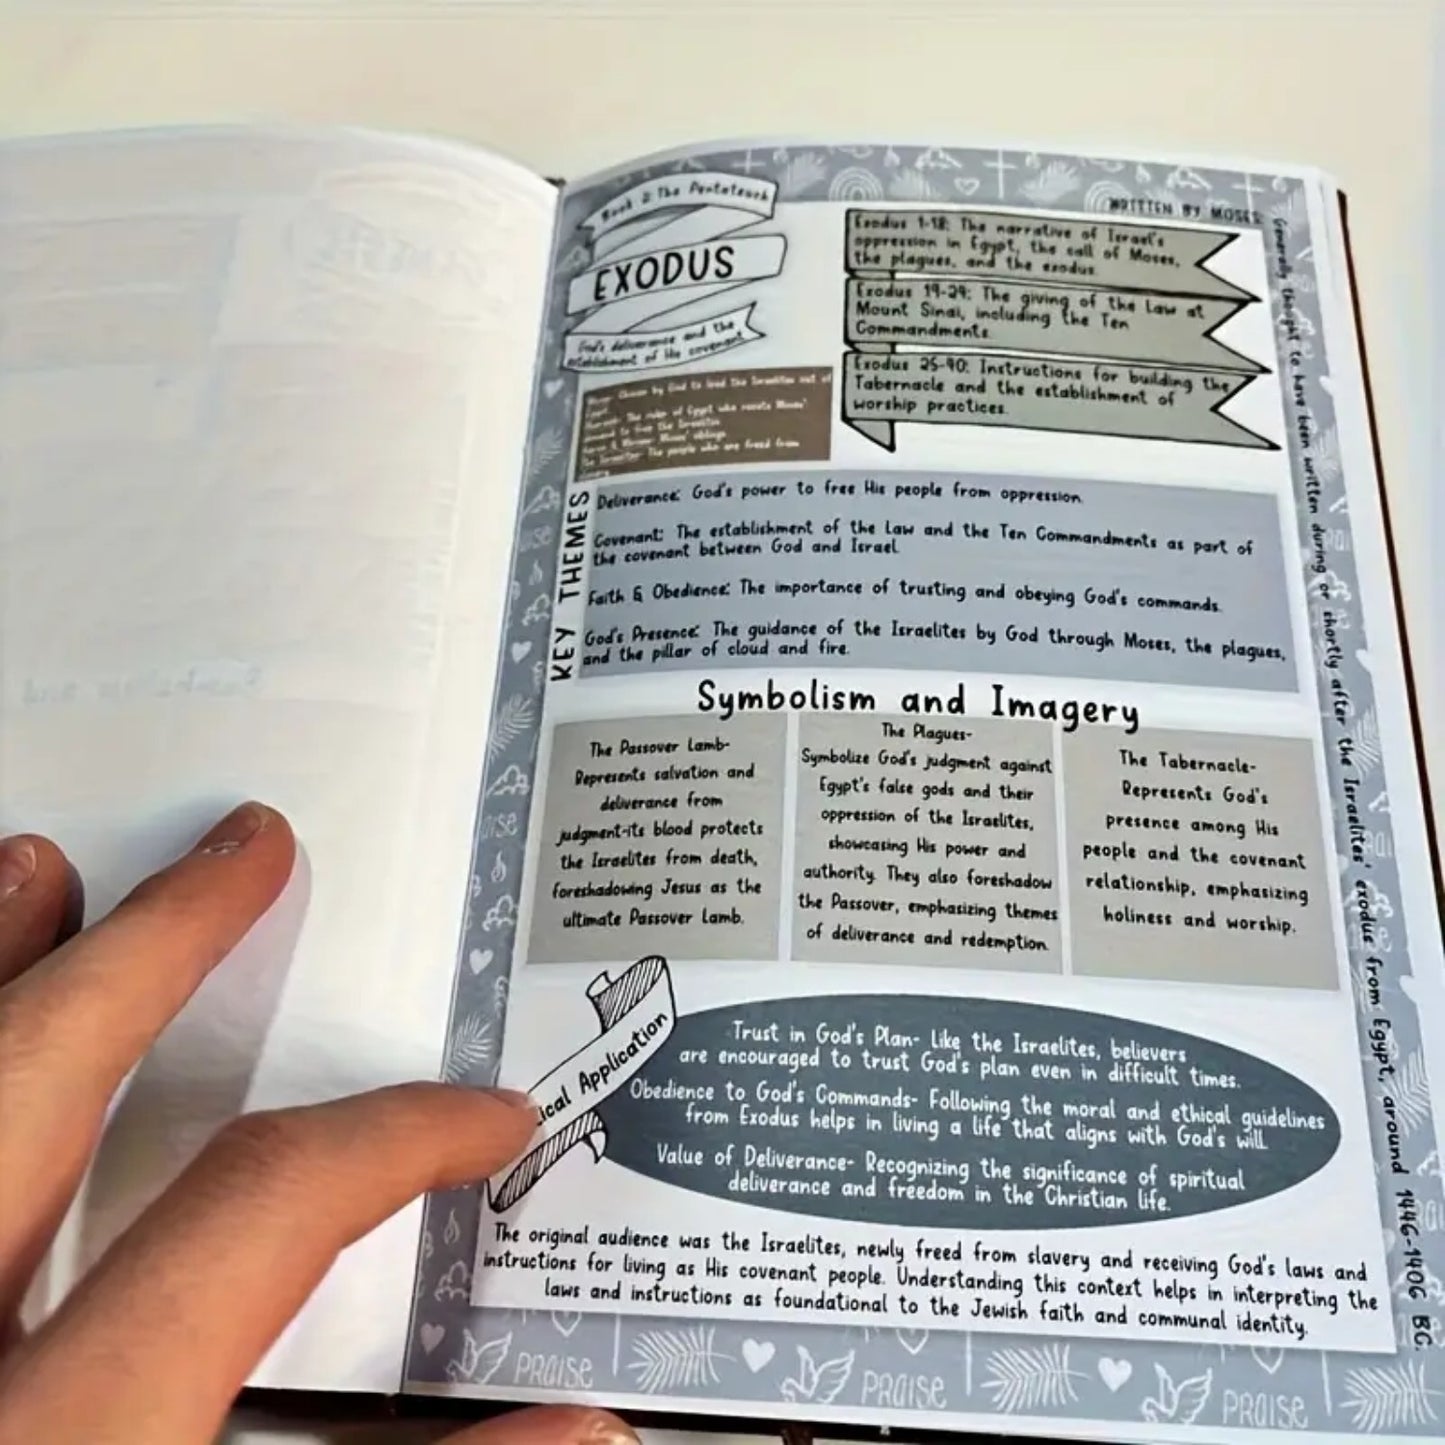 Book 2: The Pentateuch
EXODUS
God's deliverance and the
establishment of His covenant
WRITTEN BY MOSES:
Exodus 1-18: The narrative of Israel's
oppression in Egypt, the call of Moses,
the plagues, and the exodus.
Exodus 19-24: The giving of the Law at
Mount Sinai, including the Ten
Commandments.
Exodus 25-40: Instructions for building the
Tabernacle and the establishment of
worship practices.
Moses- Chosen by God to lead the Israelites out of
Egypt.
Pharaoh- The ruler of Egypt who resists Moses'
demand to free the Israelites
Aaron & Miriam- Moses' siblings
The Israelites- The people who are freed from
KEY THEMES
Deliverance: God's power to free His people from oppression.
Covenant: The establishment of the Law and the Ten Commandments as part of
the covenant between God and Israel.
Faith & Obedience: The importance of trusting and obeying God's commands.
God's Presence: The guidance of the Israelites by God through Moses, the plagues,
and the pillar of cloud and fire.
Symbolism and Imagery
The Passover Lamb-
Represents salvation and
deliverance from
judgment-its blood protects
the Israelites from death,
foreshadowing Jesus as the
ultimate Passover Lamb.
The Plagues-
Symbolize God's judgment against
Egypt's false gods and their
oppression of the Israelites,
showcasing His power and
authority. They also foreshadow
the Passover, emphasizing themes
of deliverance and redemption.
The Tabernacle-
Represents God's
presence among His
people and the covenant
relationship, emphasizing
holiness and worship.
ical Application
Trust in God's Plan- Like the Israelites, believers
are encouraged to trust God's plan even in difficult times.
Obedience to God's Commands- Following the moral and ethical guidelines
from Exodus helps in living a life that aligns with God's will.
Value of Deliverance- Recognizing the significance of spiritual
deliverance and freedom in the Christian life.
The original audience was the Israelites, newly freed from slavery and receiving God's laws and
instructions for living as His covenant people. Understanding this context helps in interpreting the
laws and instructions as foundational to the Jewish faith and communal identity.
Generally thought to have been written during or shortly after the Israelites' exodus from Egypt, around 1446-1406 BC.
PRAISE
PRAISE
PRAISE